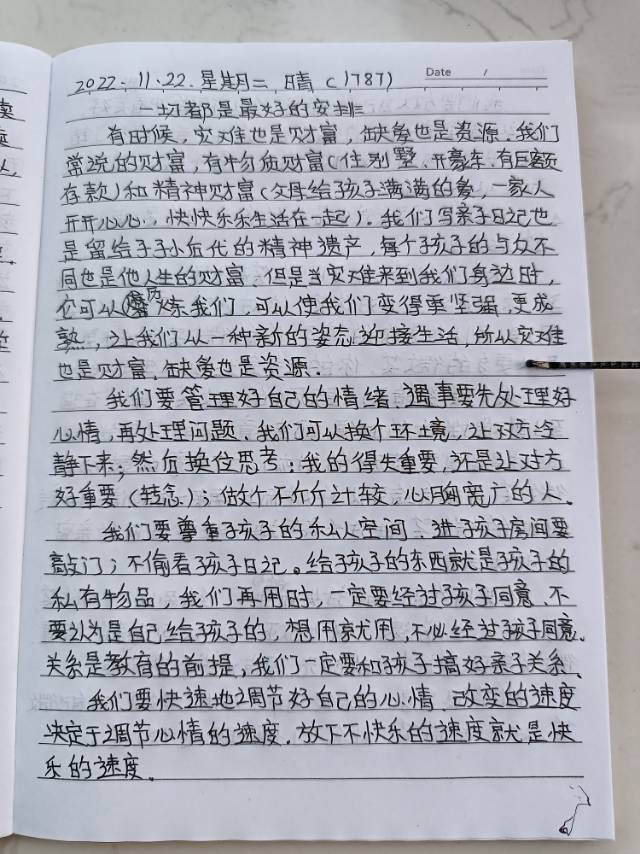 Date /
2022.11.22.星期二 晴(1787)
一切都是最好的安排
有时候,灾难也是财富,缺爱也是资源.我们
常说的财富,有物质财富(住别墅.开豪车.有巨额
存款)和精神财富(父母给孩子满满的爱,一家人
开开心心.快快乐乐生活在一起).我们写亲子日记也
是留给子孙后代的精神遗产,每个孩子的与众不
同也是他人生的财富.但是当灾难来到我们身边时,
它可以磨炼我们,可以使我们变得更坚强.更成
熟,让我们从一种新的姿态迎接生活,所以灾难
也是财富.缺爱也是资源.
我们要管理好自己的情绪.遇事要先处理好
心情,再处理问题.我们可以换个环境,让对方冷
静下来;然后换位思考:我的得失重要,还是让对方
好重要(转念);做个不斤斤计较,心胸宽广的人.
我们要尊重孩子的私人空间.进孩子房间要
敲门;不偷看孩子日记。给孩子的东西就是孩子的
私有物品,我们再用时,一定要经过孩子同意.不
要认为是自己给孩子的,想用就用,不必经过孩子同意.
关系是教育的前提,我们一定要和孩子搞好亲子关系.
我们要快速地调节好自己的心情.改变的速度
决定于调节心情的速度.放下不快乐的速度就是快
乐的速度.